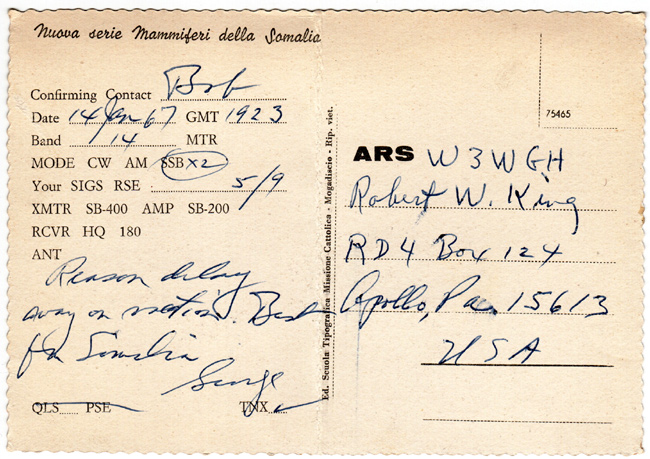 Nuova serie Mammiferi della Somalia
Confirming Contact Bob
Date 14 Jan 67 GMT 1923
Band 14 MTR
MODE CW AM SSB X2
Your SIGS RSE 5/9
XMTR SB-400 AMP SB-200
RCVR HQ 180
ANT
Reason delay
away on vacation. Best
fm Somalia
George
QLS PSE TNX
Ed. Scuola Tipografica Missione Cattolica - Mogadiscio - Rip. viet.
75465
ARS W3WGH
Robert W. King
RD4 Box 124
Apollo, Pa. 15613
USA